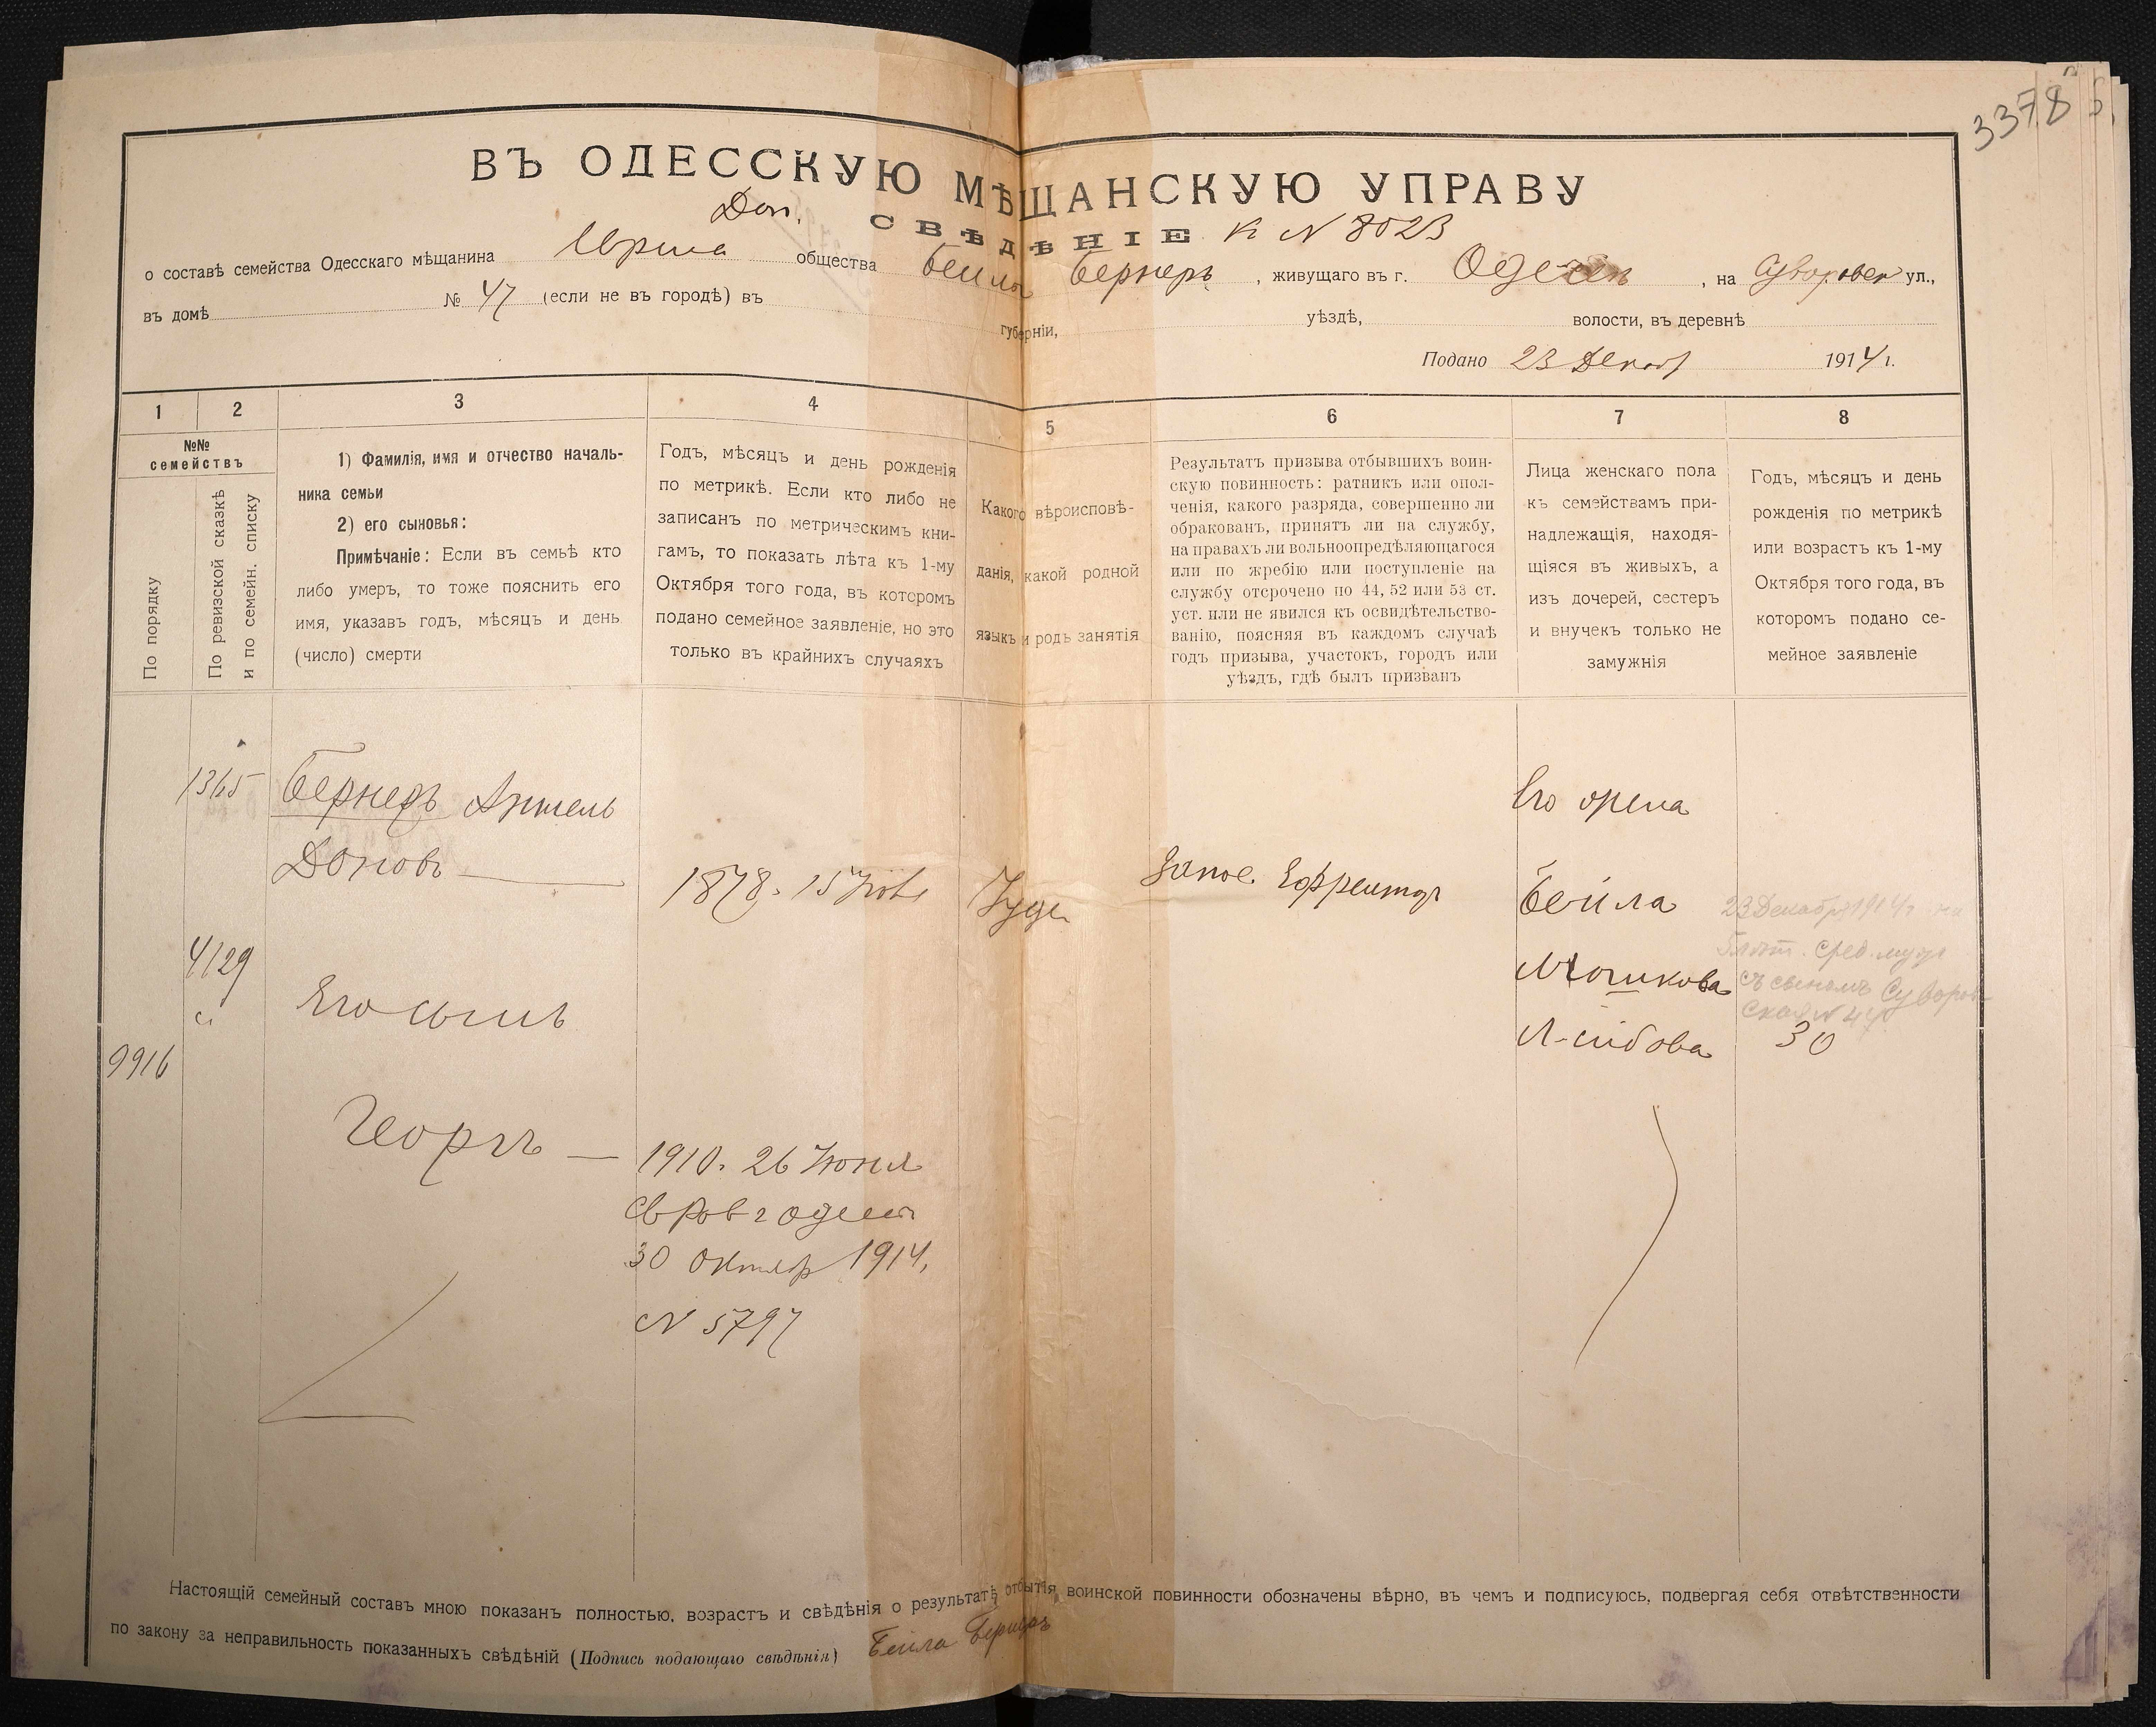 3378
ВЪ ОДЕССКУЮ МѢЩАНСКУЮ УПРАВУ
Доп. СВѢДѢНІЕ к N 8023
о составѣ семейства Одесскаго мѣщанина общества Бейлы Бернеръ, живущаго въ г. Одессѣ, на Суворовск ул.,
въ домѣ № 47 (если не въ городѣ) въ губерніи, уѣздѣ, волости, въ деревнѣ
Подано 23 Декаб 1914 г.
1 2 3 4 5 6 7 8
№№
семействъ
По порядку
По ревизской сказкѣ
и по семейн. списку
1) Фамилія, имя и отчество началь-
ника семьи
2) его сыновья:
Примѣчаніе: Если въ семьѣ кто
либо умеръ, то тоже пояснить его
имя, указавъ годъ, мѣсяцъ и день
(число) смерти
Годъ, мѣсяцъ и день рожденія
по метрикѣ. Если кто либо не
записанъ по метрическимъ кни-
гамъ, то показать лѣта къ 1-му
Октября того года, въ которомъ
подано семейное заявленіе, но это
только въ крайнихъ случаяхъ
Какого вѣроисповѣ-
данія, какой родной
языкъ и родъ занятія
Результатъ призыва отбывшихъ воин-
скую повинность: ратникъ или опол-
ченія, какого разряда, совершенно ли
обракованъ, принятъ ли на службу,
на правахъ ли вольноопредѣляющагося
или по жребію или поступленіе на
службу отсрочено по 44, 52 или 53 ст.
уст. или не явился къ освидѣтельство-
ванію, поясняя въ каждомъ случаѣ
годъ призыва, участокъ, городъ или
уѣздъ, гдѣ былъ призванъ
Лица женскаго пола
къ семействамъ при-
надлежащія, находя-
щіяся въ живыхъ, а
изъ дочерей, сестеръ
и внучекъ только не
замужнія
Годъ, мѣсяцъ и день
рожденія по метрикѣ
или возрастъ къ 1-му
Октября того года, въ
которомъ подано се-
мейное заявленіе
1365
Бернеръ
Доновъ
1878. 15
Іуде
Запос Ефрейтор
Его
Бейла
Мошкова
Лейбова
30
23 Декабр 1914 г
съ сыномъ Суворов
ская N 47
4129
Его сынъ
9916
Георгъ —
1910. 26 Іюня
Св Рав г Одессы
30 Октябр 1914,
N 5797
Настоящій семейный составъ мною показанъ полностью, возрастъ и свѣдѣнія о результатѣ отбытія воинской повинности обозначены вѣрно, въ чемъ и подписуюсь, подвергая себя отвѣтственности
по закону за неправильность показанныхъ свѣдѣній (Подпись подающаго свѣдѣнія) Бейла Бернеръ